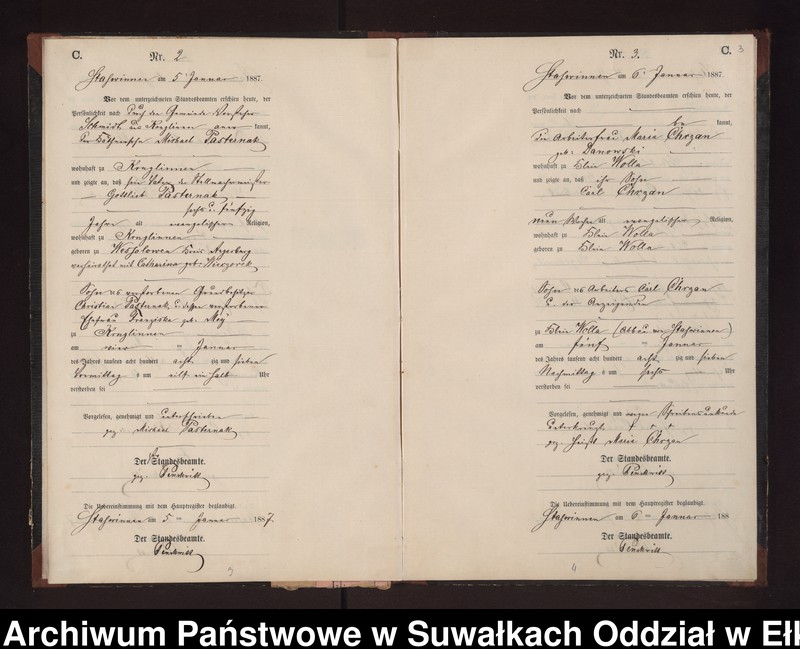 C.
Nr. 2
Stassewinnen am 5. Januar 1887.
Vor dem unterzeichneten Standesbeamten erschien heute, der
Persönlichkeit nach durch den Gemeinde Vorsteher
Schmidt aus Konglinnen anerkannt,
der Michael Pasternak
wohnhaft zu Konglinnen
und zeigte an, daß sein Vater der Stellmachermeister
Gottlieb Pasternak
sechs u. fünfzig
Jahre alt evangelischer Religion,
wohnhaft zu Konglinnen
geboren zu Wessolowen Kreis Angerburg
verheirathet mit Catharina geb. Wieczorek
Sohn des verstorbenen Grundbesitzer
Christian Pasternak u. dessen verstorbener
Ehefrau Franziska geb. Mey
zu Konglinnen
am vier ten Januar
des Jahres tausend acht hundert acht zig und sieben
Vormittag s um elf ein halb Uhr
verstorben sei
Vorgelesen, genehmigt und unterschrieben
gez. Michael Pasternak
Der Standesbeamte.
gez.
Die Uebereinstimmung mit dem Hauptregister beglaubigt.
am 5 ten Januar 1887.
Der Standesbeamte.
3
C.
3
Nr. 3.
am 6. Januar 1887.
Vor dem unterzeichneten Standesbeamten erschien heute, der
Persönlichkeit nach
be kannt,
die Arbeiterfrau Marie Chrzan
geb. Danowski
wohnhaft zu Klein Wolla
und zeigte an, daß ihr Sohn
Carl Chrzan
neun Wochen alt evangelischer Religion,
wohnhaft zu Klein Wolla
geboren zu Klein Wolla
Sohn des Arbeiters Carl Chrzan
u. der Anzeigender
zu Klein Wolla (Abbau von)
am fünf ten Januar
des Jahres tausend acht hundert acht zig und sieben
Nachmittag s um sechs Uhr
verstorben sei
Vorgelesen, genehmigt und wegen Schreibensunkunde
unterkreuzt + + +
gez. Marie Chrzan
Der Standesbeamte.
gez.
Die Uebereinstimmung mit dem Hauptregister beglaubigt.
am 6 ten Januar 188
Der Standesbeamte.
4
Archiwum Państwowe w Suwałkach Oddział w Ełk